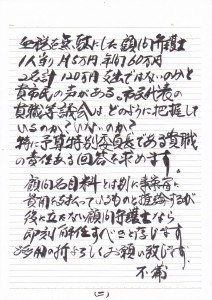 血税を無駄にした顧問弁護士
1人当り月5万円年間60万円
2名計120万支出ではないのかと
貴市民の声がある。市民代表の
貴職等議会は、どのように把握して
いるのか?いないのか?
特に予算特別委員長である貴職
の責任ある回答を求めます。
顧問名目料とは別に事案毎に
費用も支払っているものと推論するが
役に立たない顧問弁護士なら
即刻解任すべきと信じます。
お願い致します。
不備
(二)